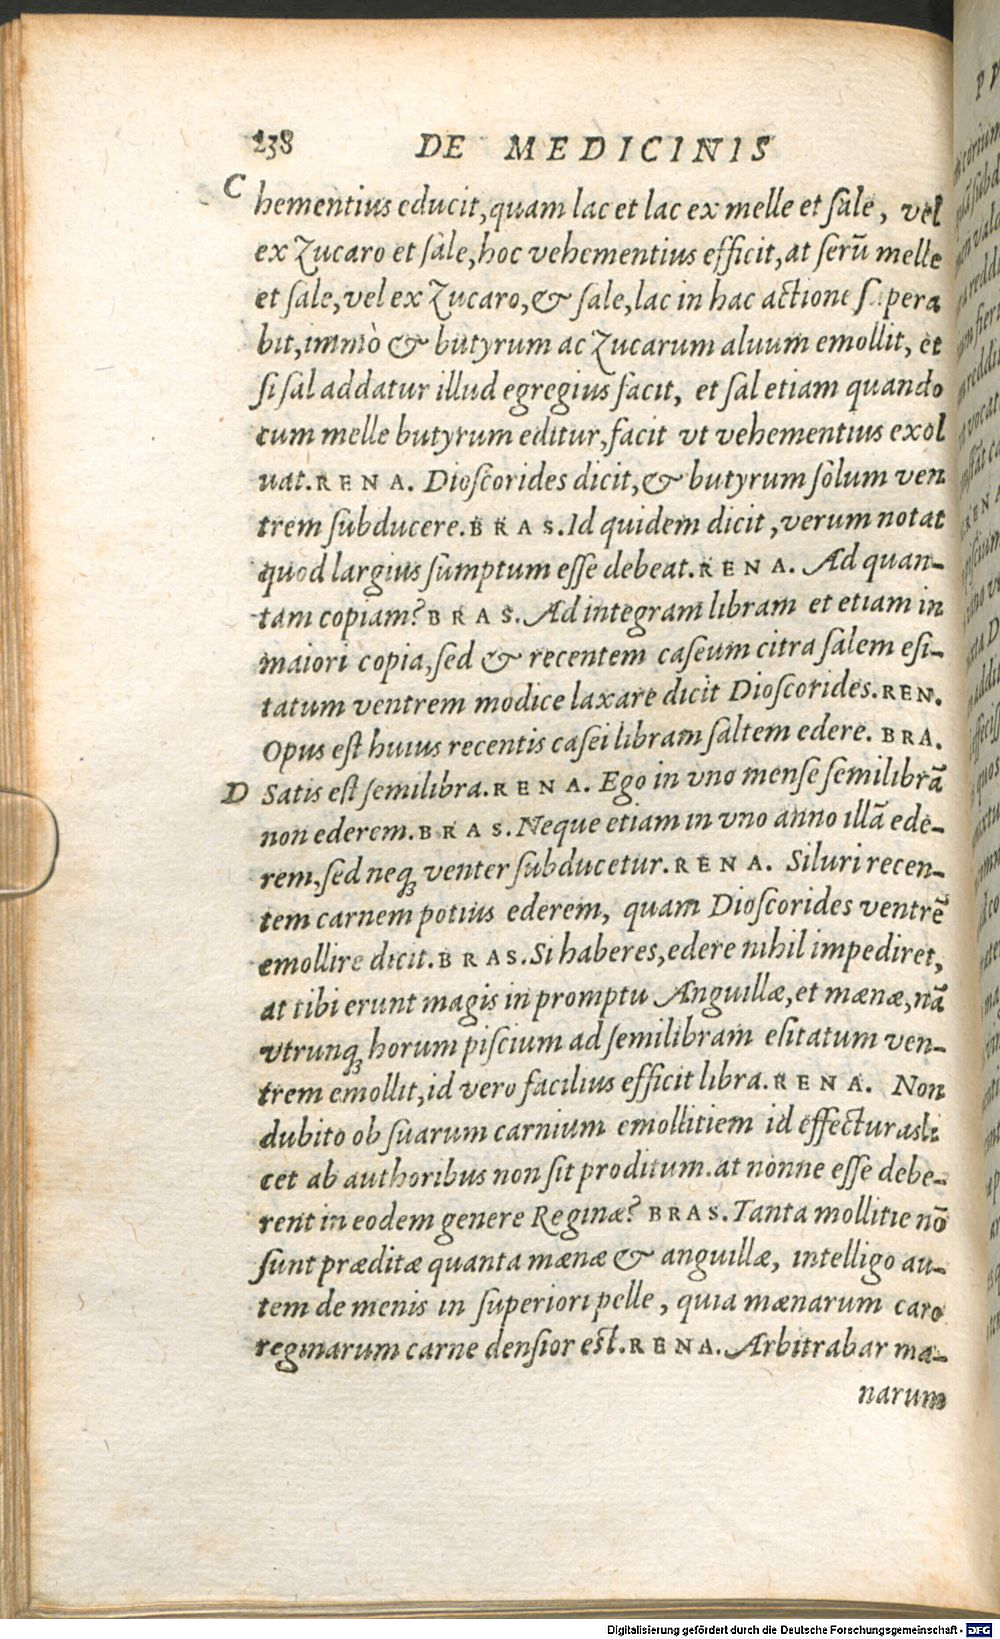 238 DE MEDICINIS
C
hementius educit, quam lac et lac ex melle et sale, vel
ex Zucaro et sale, hoc vehementius efficit, at serū melle
et sale, vel ex Zucaro, & sale, lac in hac actione supera
bit, immò & butyrum ac Zucarum aluum emollit, et
si sal addatur illud egregius facit, et sal etiam quando
cum melle butyrum editur, facit vt vehementius exol
uat. RENA. Dioscorides dicit, & butyrum solum ven
trem subducere. BRAS. Id quidem dicit, verum notat
quod largius sumptum esse debeat. RENA. Ad quan-
tam copiam? BRAS. Ad integram libram et etiam in
maiori copia, sed & recentem caseum citra salem esi-
tatum ventrem modice laxare dicit Dioscorides. REN.
Opus est huius recentis casei libram saltem edere. BRA.
D Satis est semilibra. RENA. Ego in vno mense semilibrā
non ederem. BRAS. Neque etiam in vno anno illā ede-
rem, sed neq; venter subducetur. RENA. Siluri recen-
tem carnem potius ederem, quam Dioscorides ventrē
emollire dicit. BRAS. Si haberes, edere nihil impediret,
at tibi erunt magis in promptu Anguillæ, et mænæ, nā
vtrunq; horum piscium ad semilibram esitatum ven-
trem emollit, id vero facilius efficit libra. RENA. Non
dubito ob suarum carnium emollitiem id effecturas li
cet ab authoribus non sit proditum. at nonne esse debe-
rent in eodem genere Reginæ? BRAS. Tanta mollitie nō
sunt præditæ quanta mænæ & anguillæ, intelligo au-
tem de menis in superiori pelle, quia mænarum caro
reginarum carne densior est. RENA. Arbitrabar mæ-
narum
Digitalisierung gefördert durch die Deutsche Forschungsgemeinschaft - DFG